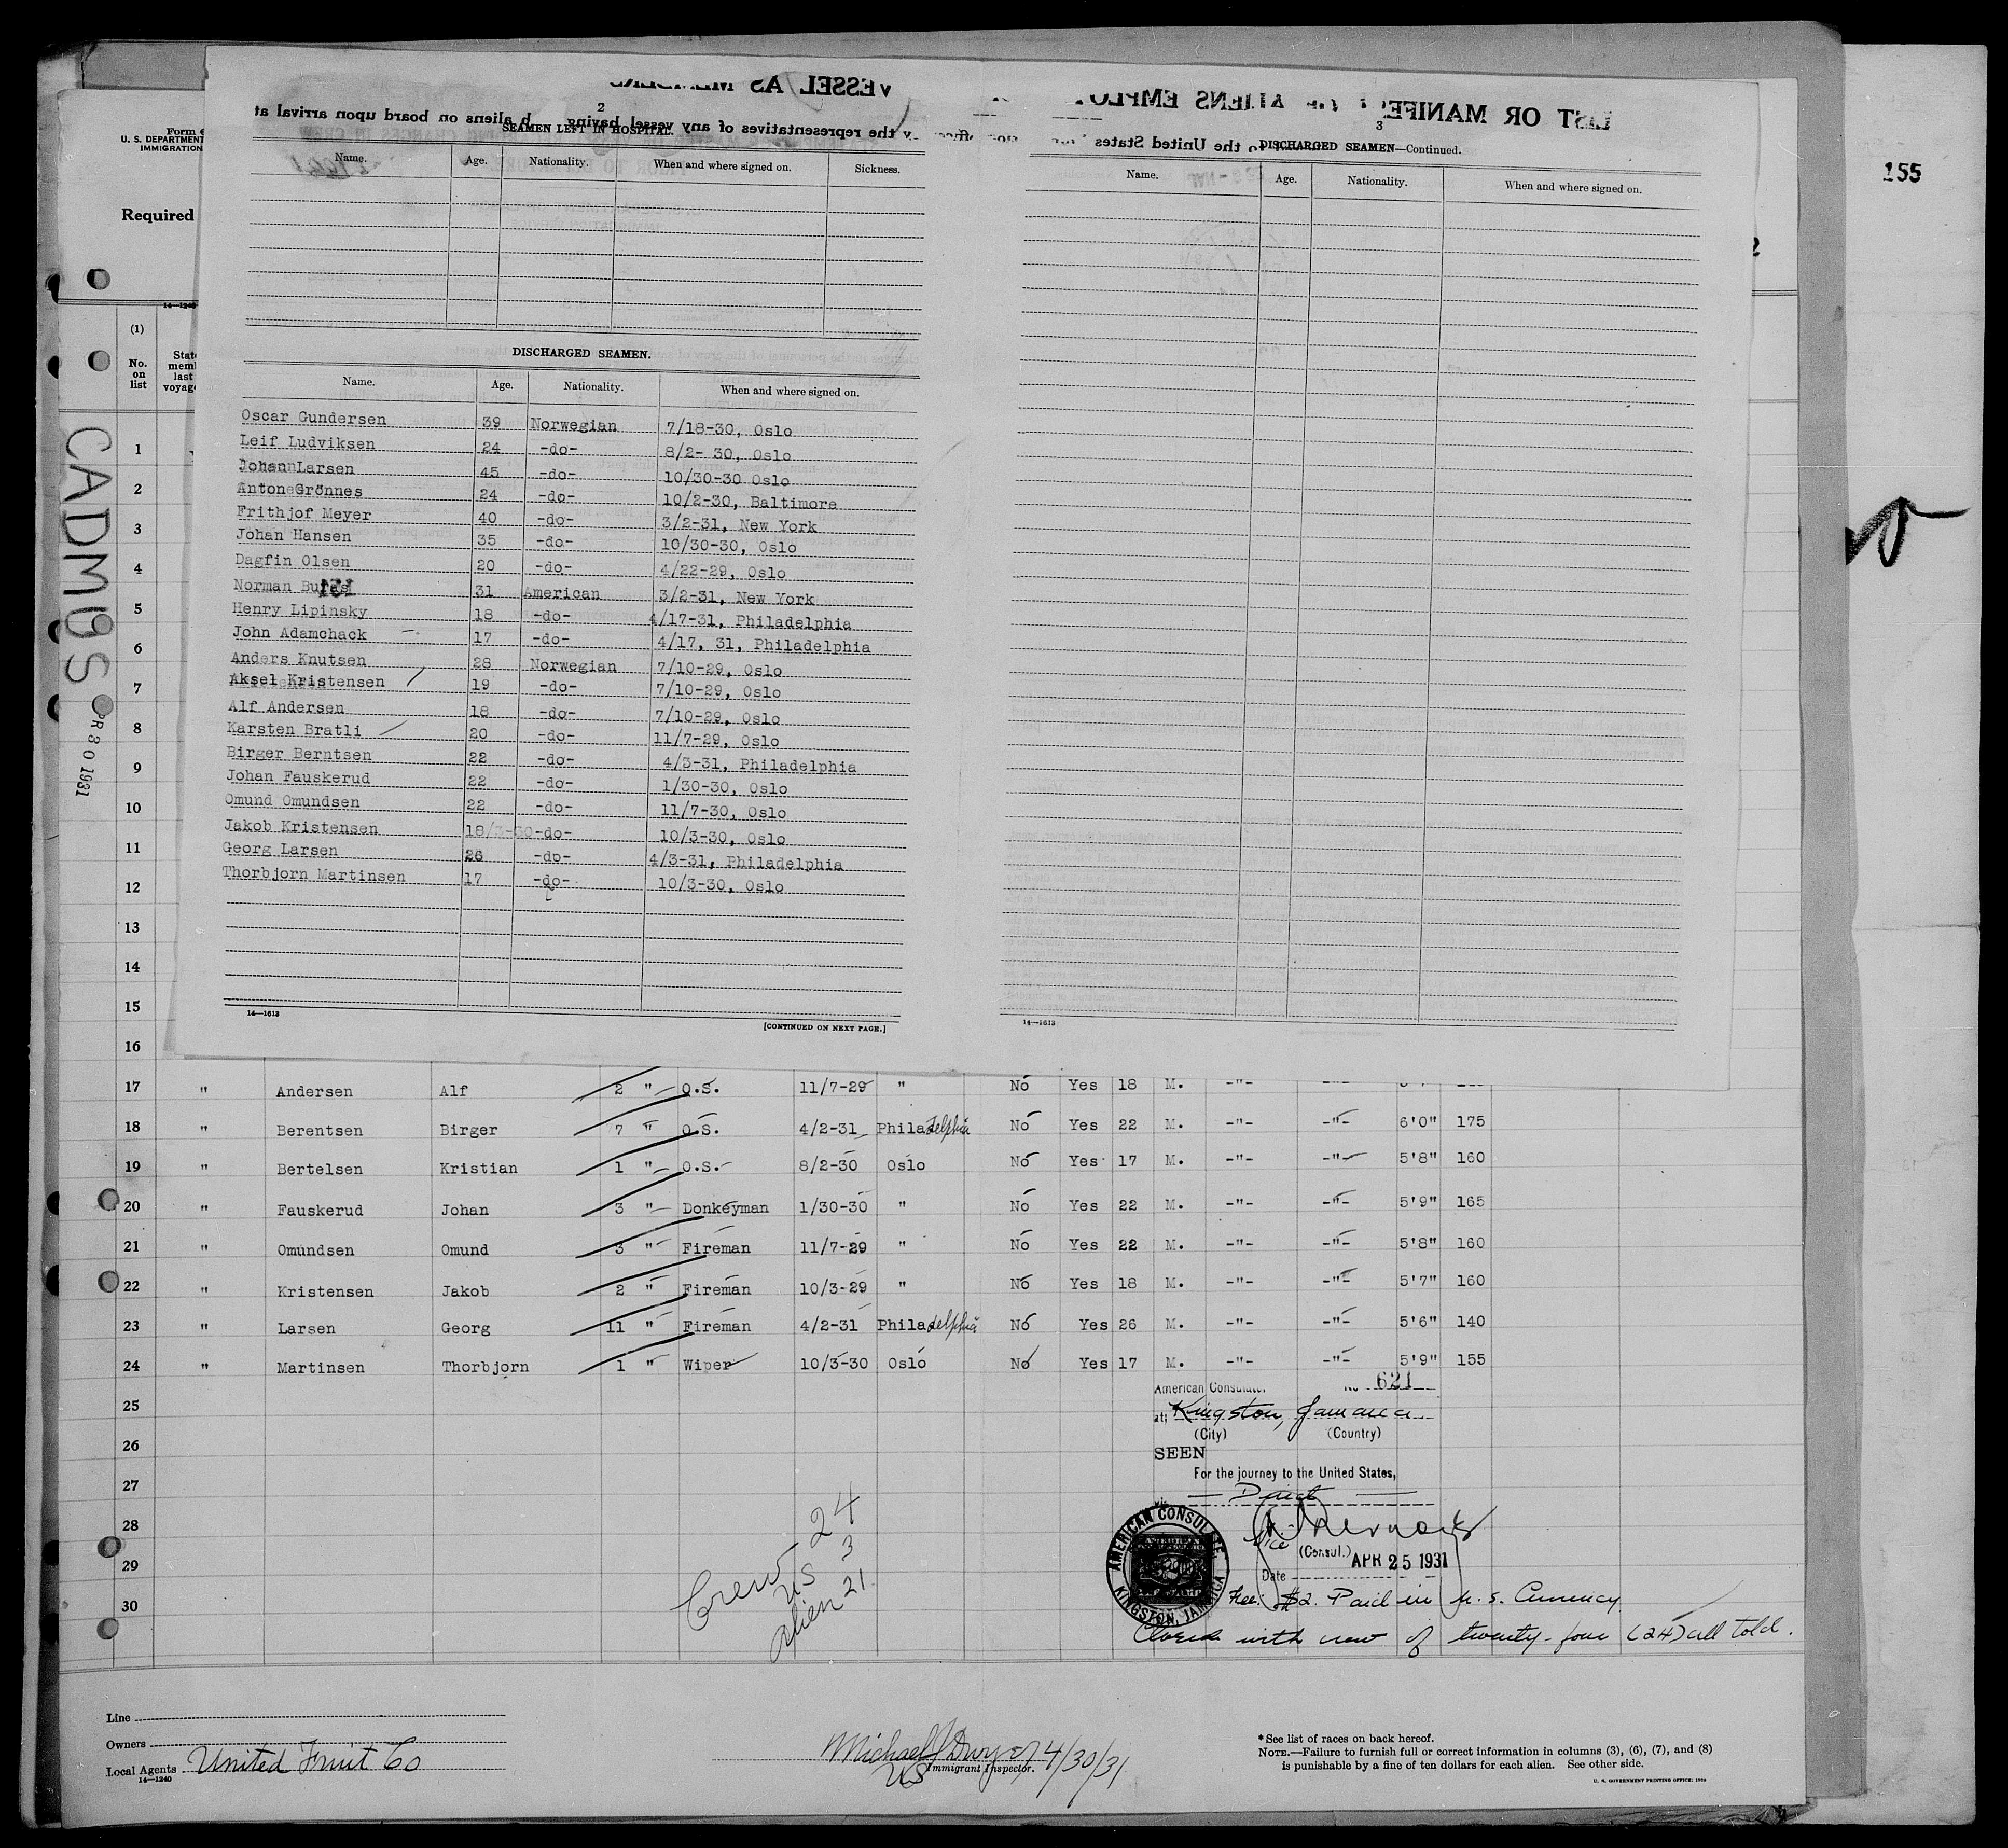 155
Form
U. S. DEPARTMENT
IMMIGRATION
Required
14—1240
(1)
No. on list
State
memb
last
voyage
CADMUS
PR 30 1931
2
SEAMEN LEFT IN HOSPITAL.
Name. Age. Nationality. When and where signed on. Sickness.
DISCHARGED SEAMEN.
Name. Age. Nationality. When and where signed on.
Oscar Gundersen 39 Norwegian 7/18-30, Oslo
Leif Ludviksen 24 -do- 8/2- 30, Oslo
Johan Larsen 45 -do- 10/30-30 Oslo
Anton Grönnes 24 -do- 10/2-30, Baltimore
Frithjof Meyer 40 -do- 3/2-31, New York
Johan Hansen 35 -do- 10/30-30, Oslo
Dagfin Olsen 20 -do- 4/22-29, Oslo
Norman 151 31 American 3/2-31, New York
Henry Lipinsky 18 -do- 4/17-31, Philadelphia
John Adamchack 17 -do- 4/17, 31, Philadelphia
Anders Knutsen 28 Norwegian 7/10-29, Oslo
Aksel Kristensen 19 -do- 7/10-29, Oslo
Alf Andersen 18 -do- 7/10-29, Oslo
Karsten Bratli 20 -do- 11/7-29, Oslo
Birger Berntsen 22 -do- 4/3-31, Philadelphia
Johan Fauskerud 22 -do- 1/30-30, Oslo
Omund Omundsen 22 -do- 11/7-30, Oslo
Jakob Kristensen 18 -do- 10/3-30, Oslo
Georg Larsen 26 -do- 4/3-31, Philadelphia
Thorbjorn Martinsen 17 -do- 10/3-30, Oslo
14—1613
[CONTINUED ON NEXT PAGE.]
3
DISCHARGED SEAMEN—Continued.
Name. Age. Nationality. When and where signed on.
14—1613
1
2
3
4
5
6
7
8
9
10
11
12
13
14
15
16
17 " Andersen Alf 2 " O.S. 11/7-29 " No Yes 18 M. -"- -"-
18 " Berentsen Birger 7 " O.S. 4/2-31 Philadelphia No Yes 22 M. -"- -"- 6'0" 175
19 " Bertelsen Kristian 1 " O.S. 8/2-30 Oslo No Yes 17 M. -"- -"- 5'8" 160
20 " Fauskerud Johan 3 " Donkeyman 1/30-30 " No Yes 22 M. -"- -"- 5'9" 165
21 " Omundsen Omund 3 " Fireman 11/7-29 " No Yes 22 M. -"- -"- 5'8" 160
22 " Kristensen Jakob 2 " Fireman 10/3-29 " No Yes 18 M. -"- -"- 5'7" 160
23 " Larsen Georg 11 " Fireman 4/2-31 Philadelphia No Yes 26 M. -"- -"- 5'6" 140
24 " Martinsen Thorbjorn 1 " Wiper 10/3-30 Oslo No Yes 17 M. -"- -"- 5'9" 155
25
26
27
28
29
30
American Consulate. No 621
at: Kingston, Jamaica
(City) (Country)
SEEN
For the journey to the United States,
via Direct
Vice
(Consul.)
Date APR 25 1931
AMERICAN CONSULATE, KINGSTON, JAMAICA
Fee: $2. Paid in U. S. Currency
Closed with crew of twenty-four (24) all told.
Crew 24
US 3
Alien 21
Line
Owners
Local Agents United Fruit Co
14—1240
Michael J Dwyer 4/30/31
US Immigrant Inspector.
* See list of races on back hereof.
NOTE.—Failure to furnish full or correct information in columns (3), (6), (7), and (8)
is punishable by a fine of ten dollars for each alien. See other side.
U. S. GOVERNMENT PRINTING OFFICE: 1930